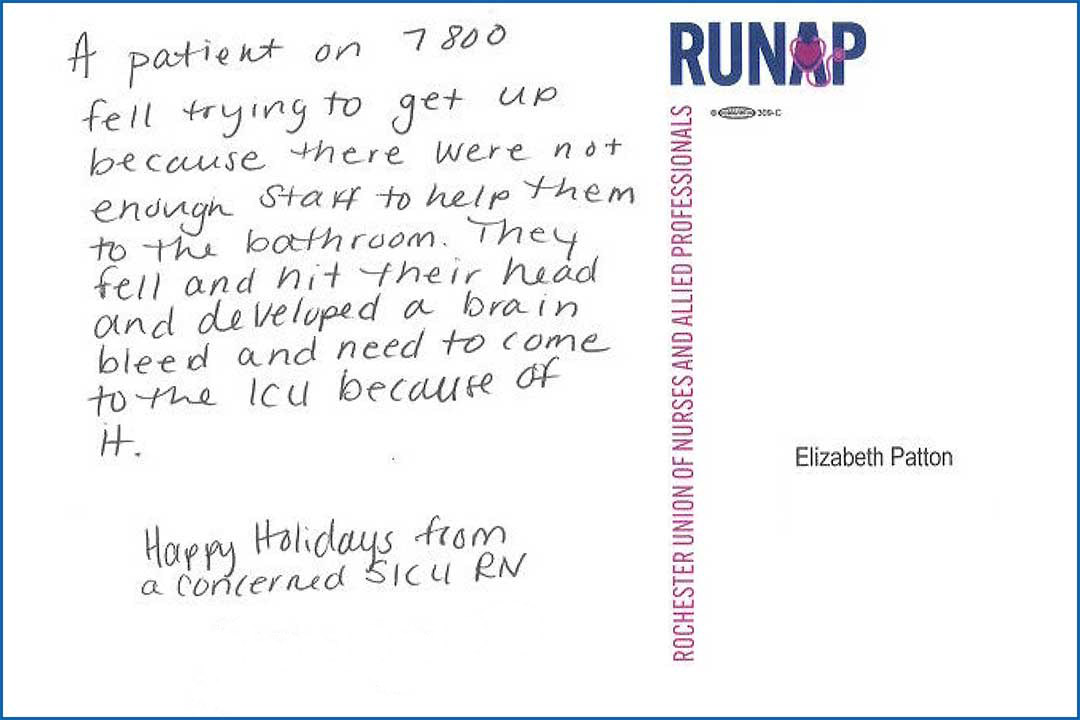 A patient on 7800
fell trying to get up
because there were not
enough staff to help them
to the bathroom. They
fell and hit their head
and developed a brain
bleed and need to come
to the ICU because of
it.
Happy Holidays from
a concerned SICU RN
RUNAP
309-C
ROCHESTER UNION OF NURSES AND ALLIED PROFESSIONALS
Elizabeth Patton